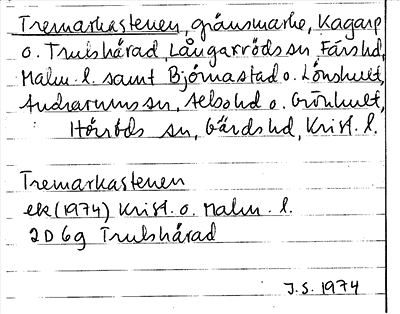 Tremarkastenen, gränsmärke, Kagarp
o. Trulshärad, Långaröds sn, Färs hd,
Malm. l. samt Björnastad o. Lönshult,
Andrarums sn, Albo hd o. Grönhult,
Hörröds sn, Gärds hd, Krist. l.
Tremarkastenen
ek (1974) Krist. o. Malm. l.
2D 6g Trulshärad
J.S. 1974